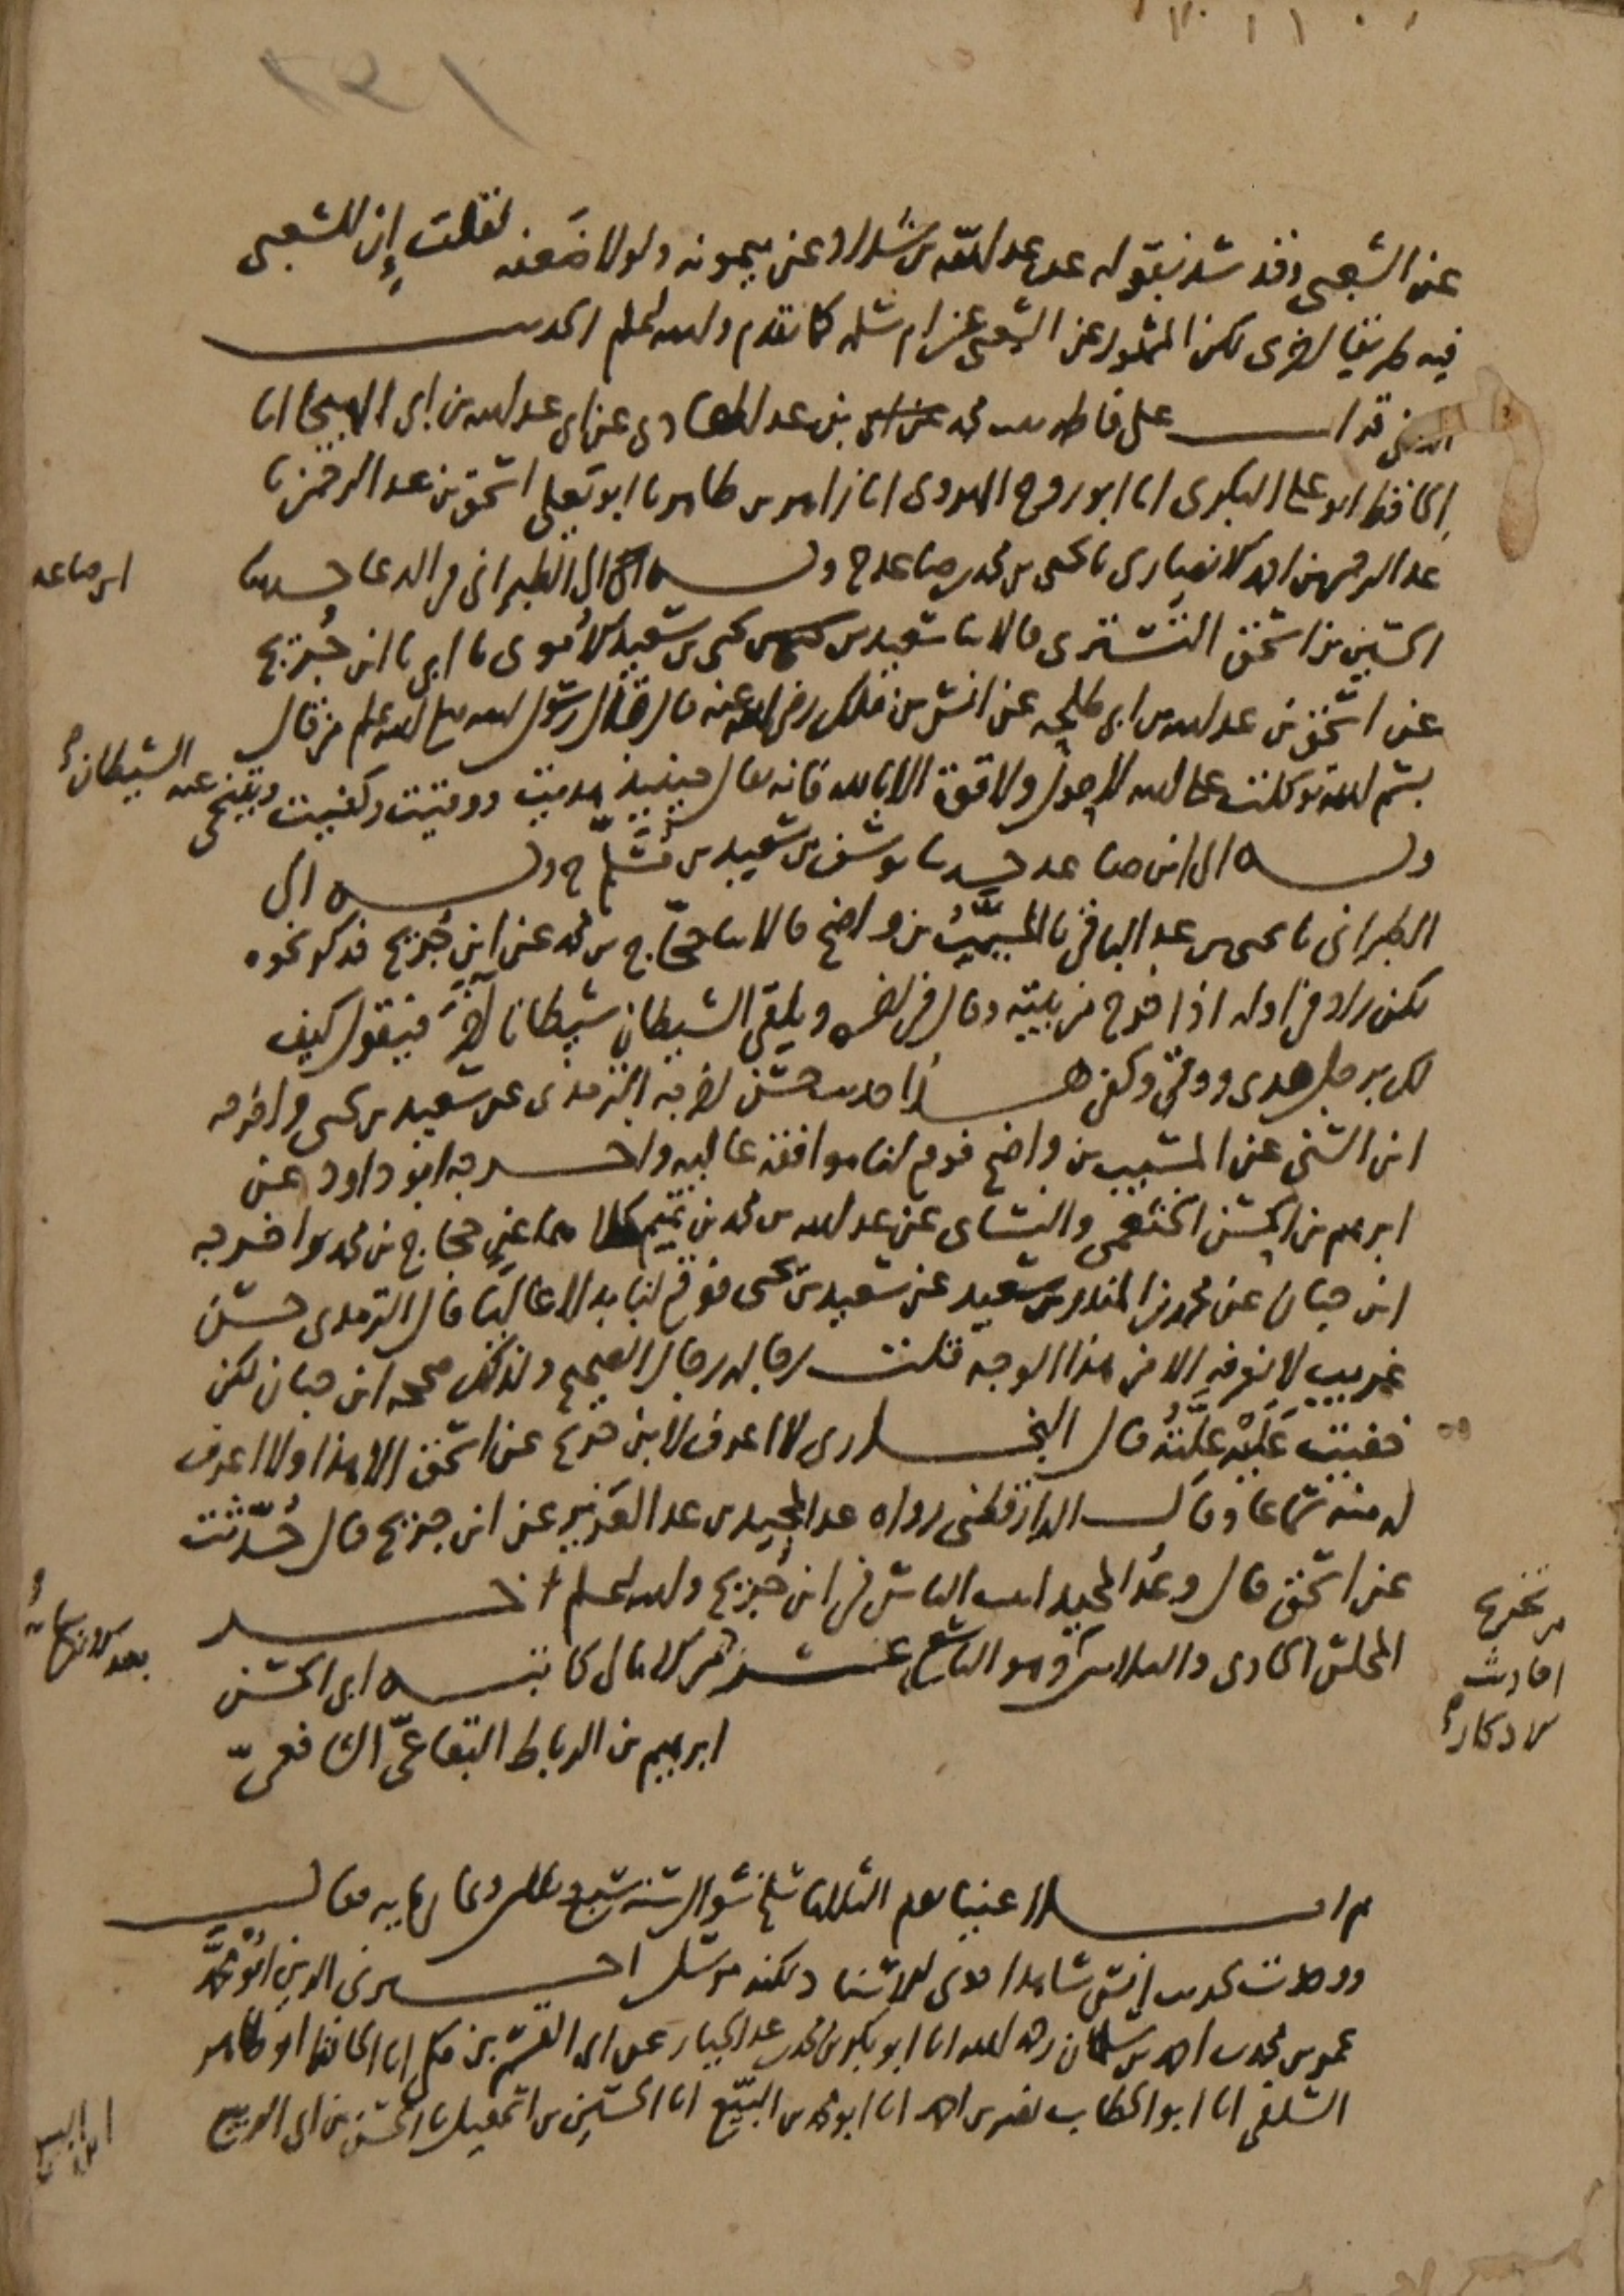 عن الشعبي وقد شذ بقوله عن عبد الله بن شداد وعن ميمونة ولولا ضعفه لقلت إن للشعبي
فيه طريقا اخرى لكن المشهور عن الشعبي عن ام سلمة كما تقدم والله اعلم الحديث
قرات على فاطمة بنت محمد بن عبد الهادي عن ابي عبد الله بن ابي الهيجا انا
الحافظ ابو علي البكري انا ابو روح الهروي انا زاهر بن طاهر نا ابو يعلى اسحق بن عبد الرحمن نا
عبد الرحمن بن احمد الانصاري نا يحيى بن محمد بن صاعد ح وبه الى الطبراني في الدعا حدثنا
ابن صاعد
الحسين بن اسحق التستري قالا ثنا سعيد بن يحيى بن سعيد الاموي نا ابي نا ابن جريج
عن اسحق بن عبد الله بن ابي طلحة عن انس بن مالك رضي الله عنه قال قال رسول الله صلى الله عليه وسلم من قال
بسم الله توكلت على الله لا حول ولا قوة الا بالله فانه يقال حينئذ هديت ووقيت وكفيت ويتنحى عنه الشيطان
وبه الى ابن صاعد حدثنا يوسف بن سعيد بن مسلم ح وبه الى
الطبراني نا يحيى بن عبد الباقي نا المسيب بن واضح قالا ثنا حجاج بن محمد عن ابن جريج فذكر نحوه
لكن زاد في اوله اذا خرج من بيته وقال في اخره ويلقى الشيطان شيطانا آخر فيقول كيف
لك برجل هدي ووقي وكفي هذا حديث حسن اخرجه الترمذي عن سعيد بن يحيى واخرجه
ابن السني عن المسيب بن واضح فوقع لنا موافقة عالية واخرجه ابو داود عن
ابرهيم بن الحسن الخثعمي والنساي عن عبد الله بن محمد بن تميم كلاهما عن حجاج بن محمد واخرجه
ابن حبان عن محمد بن المنذر بن سعيد عن سعيد بن يحيى فوقع لنا بدلا عاليا قال الترمذي حسن
غريب لا نعرفه الا من هذا الوجه قلت رجاله رجال الصحيح ولذلك صححه ابن حبان لكن
خفيت عليه علته قال البخاري لا اعرف لابن جريج عن اسحق الا هذا ولا اعرف
له منه سماعا وقال الدارقطني رواه عبد المجيد بن عبد العزيز عن ابن جريج قال حدثت
عن اسحق قال وعبد المجيد اثبت الناس في ابن جريج والله اعلم آخر
من تخريج
احاديث
الاذكار
المجلس الحادي والثلاثين وهو التاسع عشر الامالي كاتبه ابي الحسن
ابرهيم بن الرباط البقاعي الشافعي
ثم املا علينا يوم الثلاثا سلخ شوال سنة سبع وثلاثين وثمانماية فقال
ووجدت لحديث انس شاهدا قوي الاسناد لكنه مرسل اخبرني الزين ابو محمد
عمر بن محمد بن احمد بن سلمان رحمه الله انا ابو بكر بن محمد بن عبد الجبار عن ابي القسم بن مكي انا الحافظ ابو طاهر
السلفي انا ابو الخطاب نصر بن احمد انا ابو محمد بن البيع انا الحسين بن اسمعيل نا الحسن بن ابي الربيع
ابن البيع